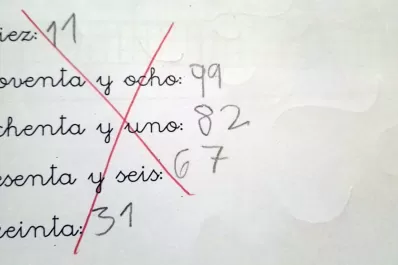 iez: 11
oventa y ocho: 99
chenta y uno: 82
esenta y seis: 67
reinta: 31